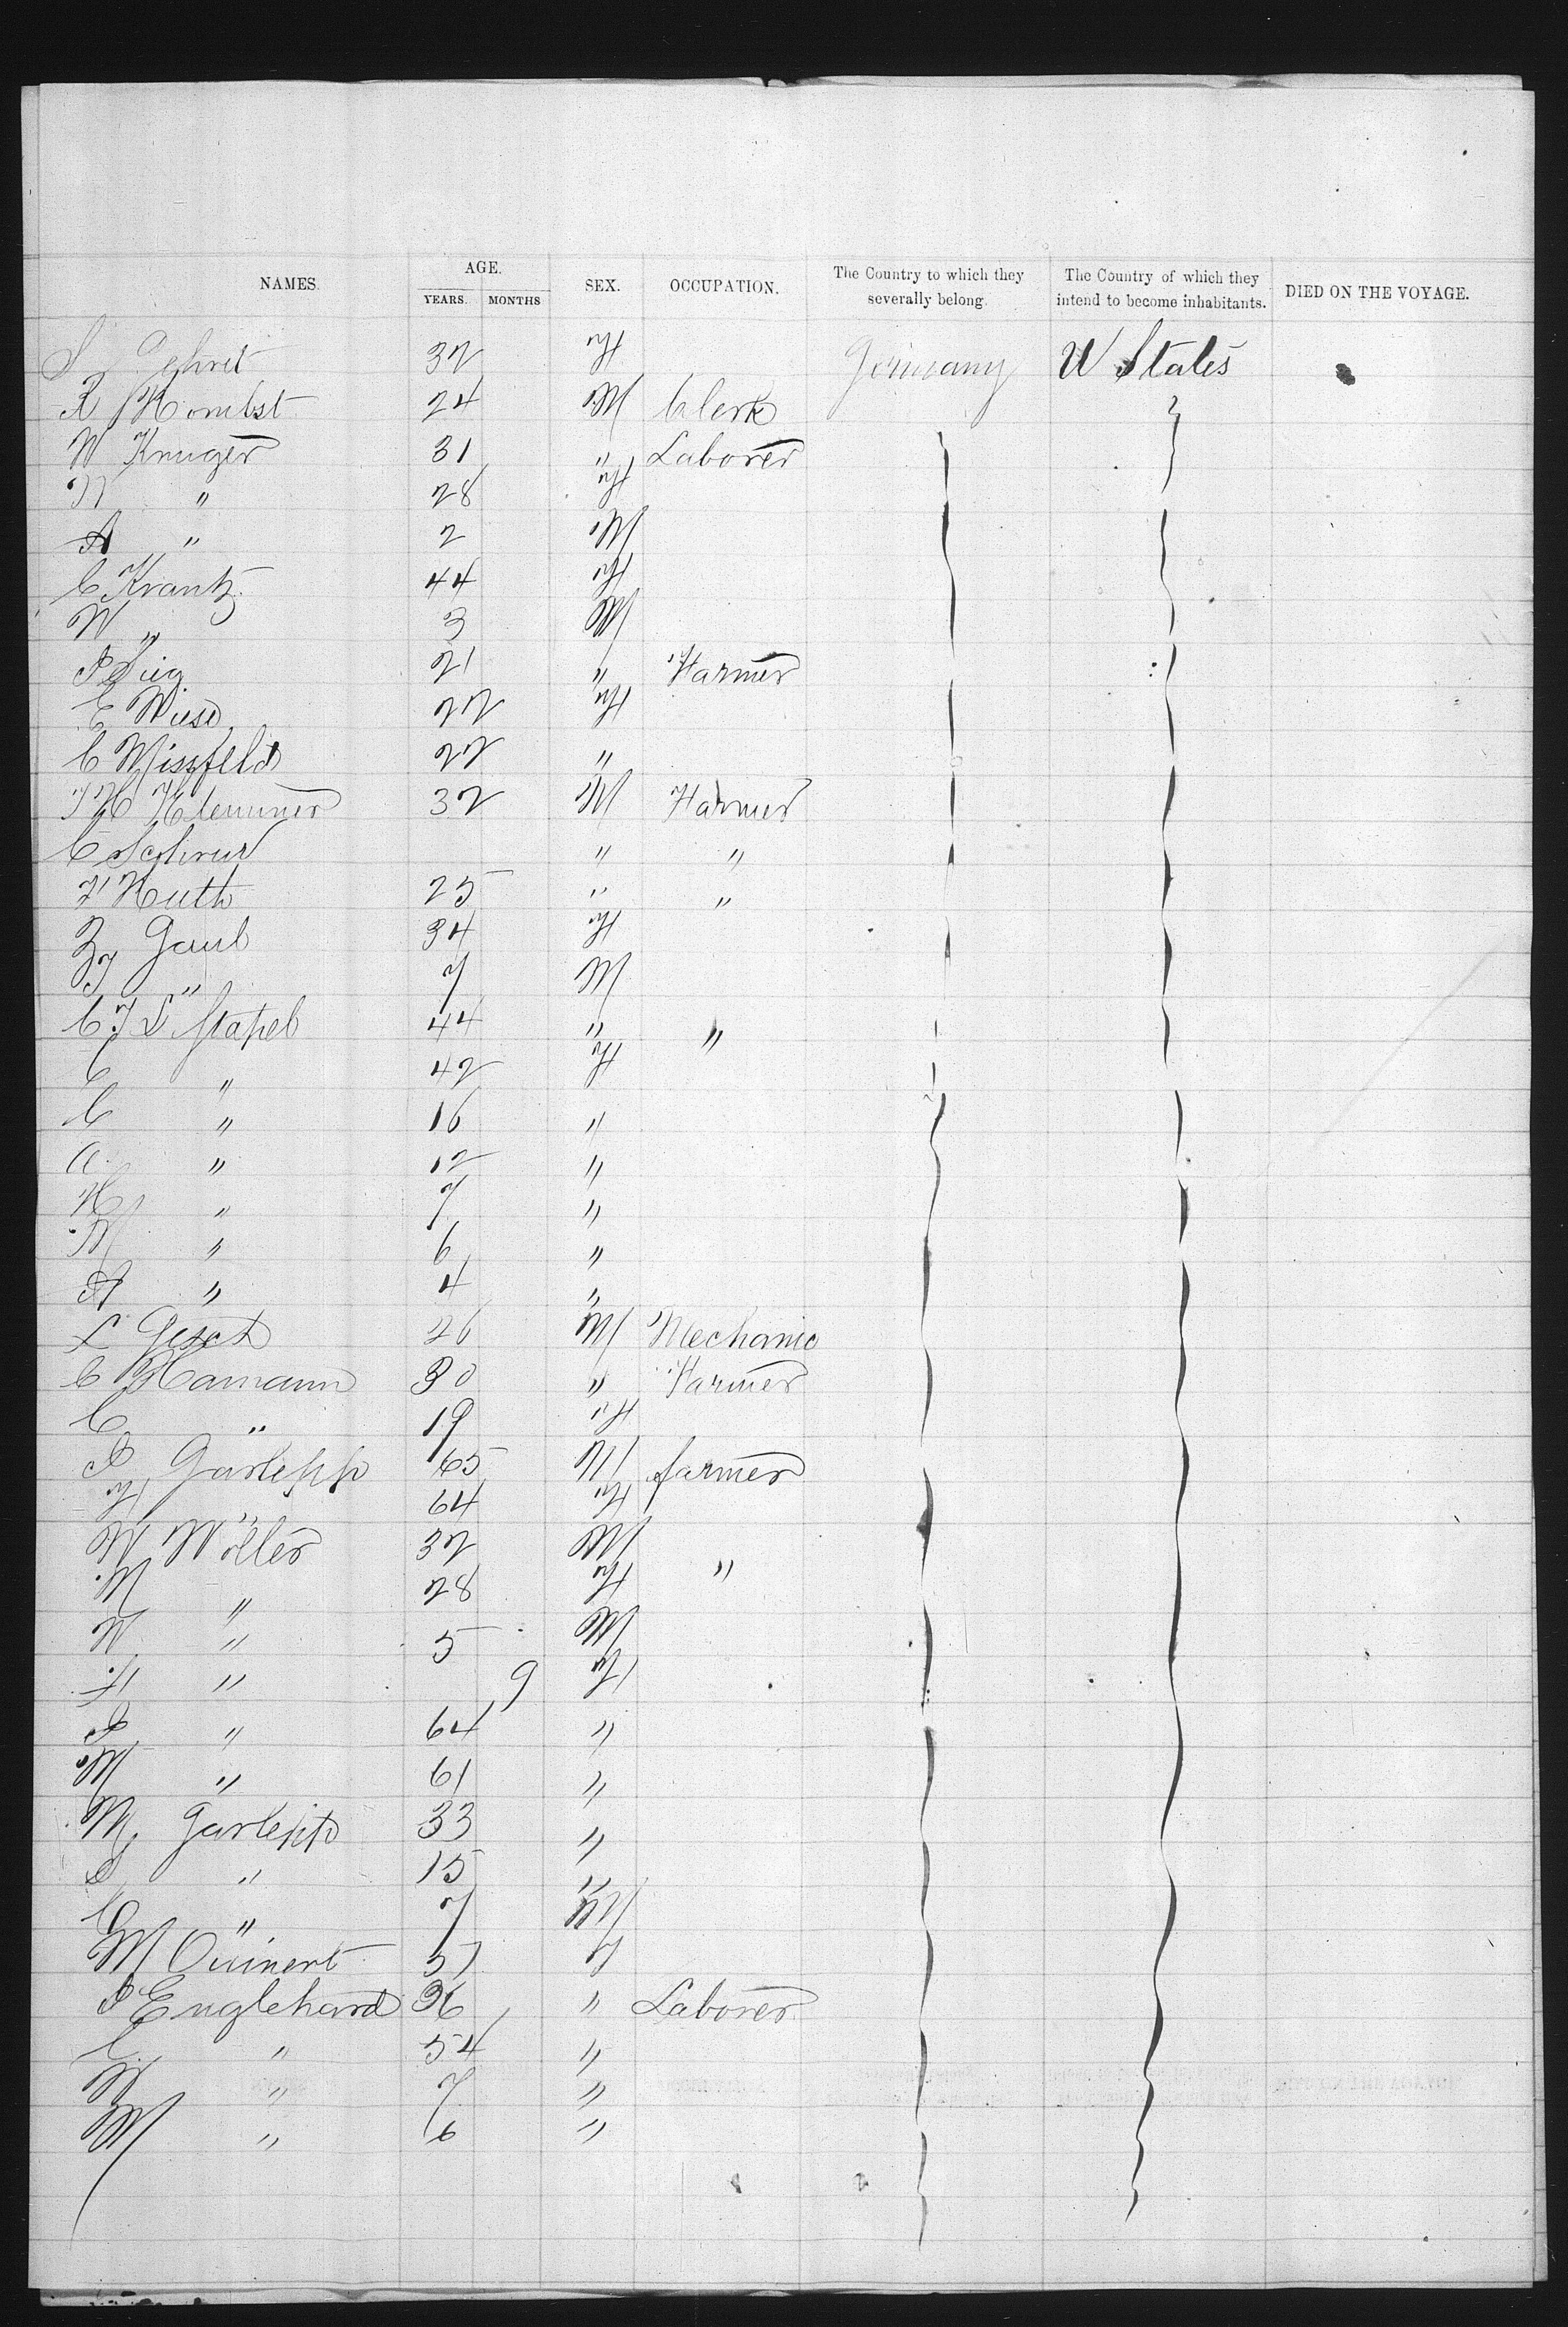 NAMES. AGE. YEARS. MONTHS SEX. OCCUPATION. The Country to which they severally belong. The Country of which they intend to become inhabitants. DIED ON THE VOYAGE.
S Gehret 32 F Germany U States
R Kombst 24 M Clerk
W Kruger 31 " Laborer
" 28 F
A " 2 M
C Krantz 44 F
W " 3 M
P 21 " Farmer
E Wiese 22 F
C Missfeld 22 "
J H Klemmer 32 M Farmer
C " "
F Huth 25 " "
Gaul 34 F
" 7 M
C J S Stapel 44 " "
C " 42 F
C " 16 "
A " 12 "
H " 7 "
M " 6 "
A " 4 "
L Gesch 26 M Mechanic
C Hamann 30 " Farmer
C " 19 F
P Garlepp 65 M farmer
F " 64 F
W Wöller 32 M
M " 28 F "
W " 5 M
" 9 F
" 64 "
M " 61 "
M Garlepp 33 "
S " 15 "
C " 7 M
M 57 F
P Englehard 36 " Laborer
C " 54 "
W " 7 "
M " 6 "